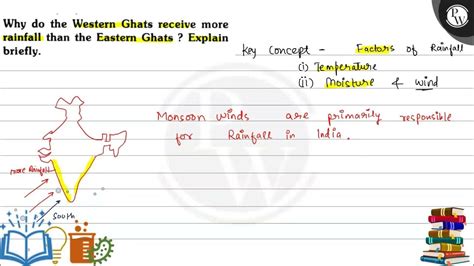 Why do the Western Ghats receive more
rainfall than the Eastern Ghats ? Explain
briefly.
Key Concept - Factors of Rainfall
(i) Temperature
(ii) Moisture & wind
Monsoon winds are primarily responsible
for Rainfall in India.
more Rainfall
South
PW